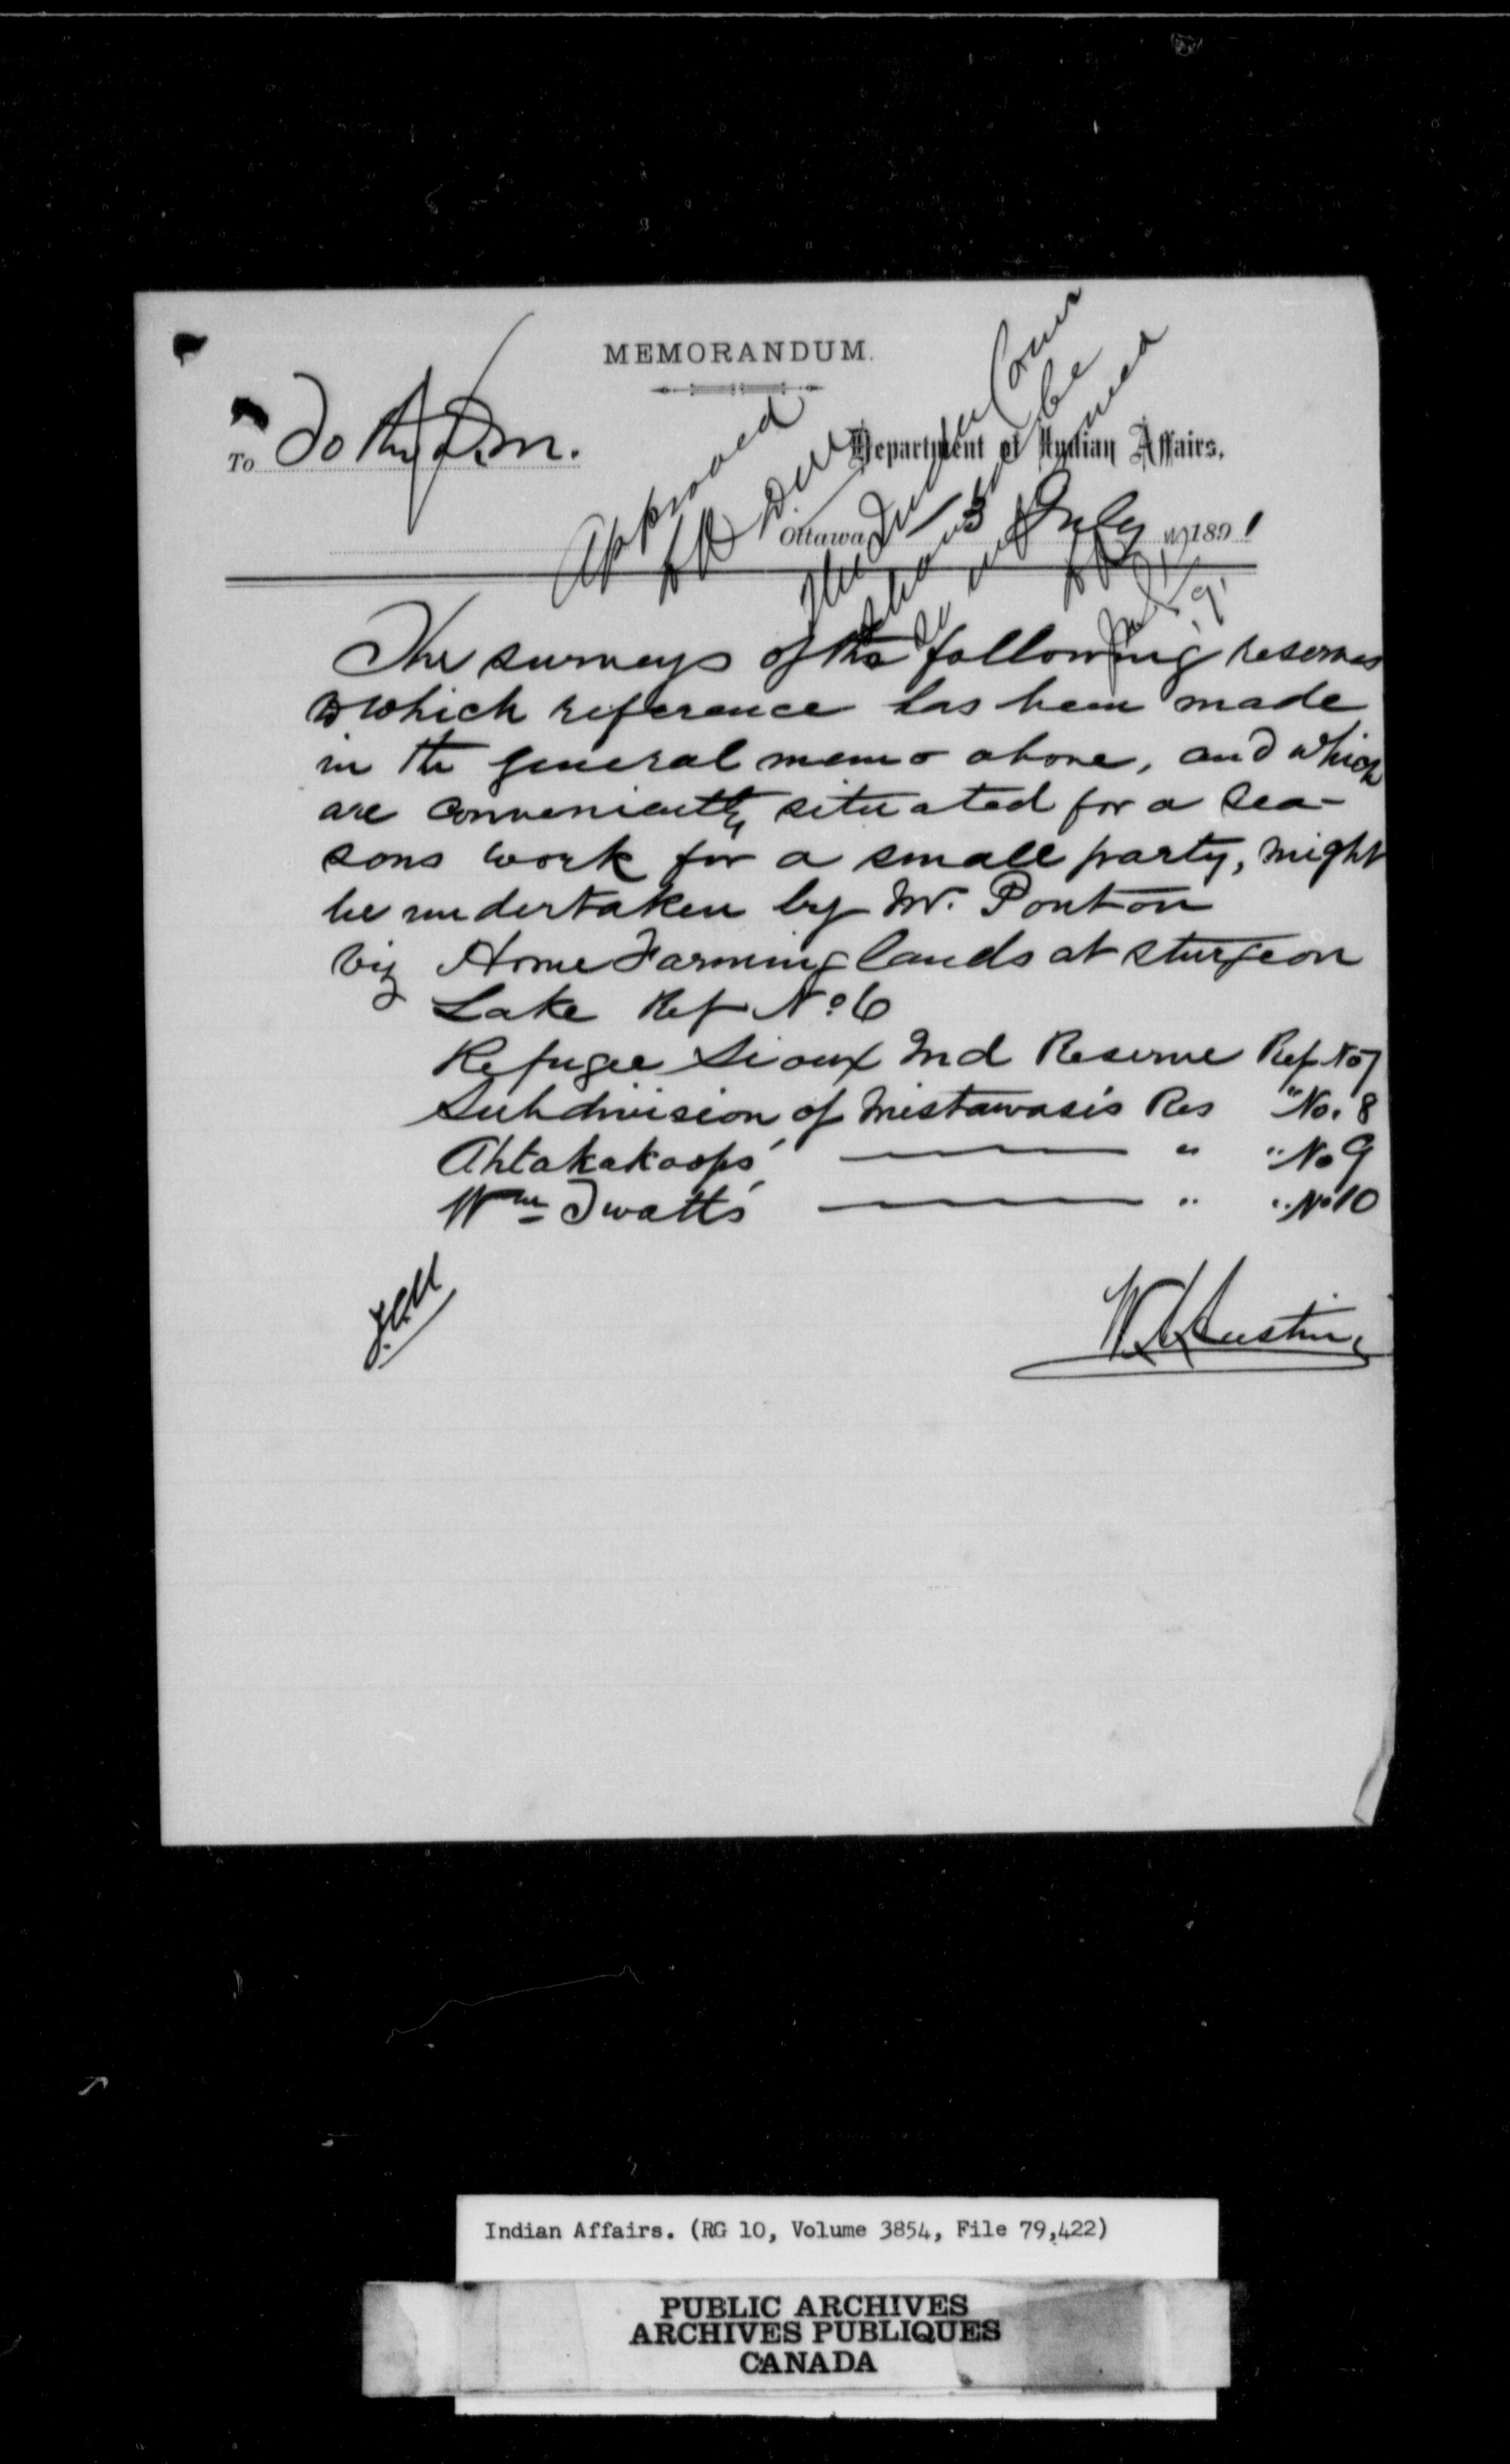 MEMORANDUM.
To To the D.M.
Department of Indian Affairs,
Ottawa, 13 July 1891
Approved
The Indian Comr
should be
The surveys of the following reserves
to which reference has been made
in the general memo above, and which
are conveniently situated for a sea-
sons work for a small party, might
be undertaken by Mr. Ponton
viz Home Farming lands at Sturgeon
Lake Ref No 6
Refugee Sioux Ind Reserve Ref No 7
Subdivision of Mistawasis Res " No. 8
Ahtakakoops' —— " " No 9
Wm Twatts' —— " " No 10
W A Austin
Indian Affairs. (RG 10, Volume 3854, File 79,422)
PUBLIC ARCHIVES
ARCHIVES PUBLIQUES
CANADA